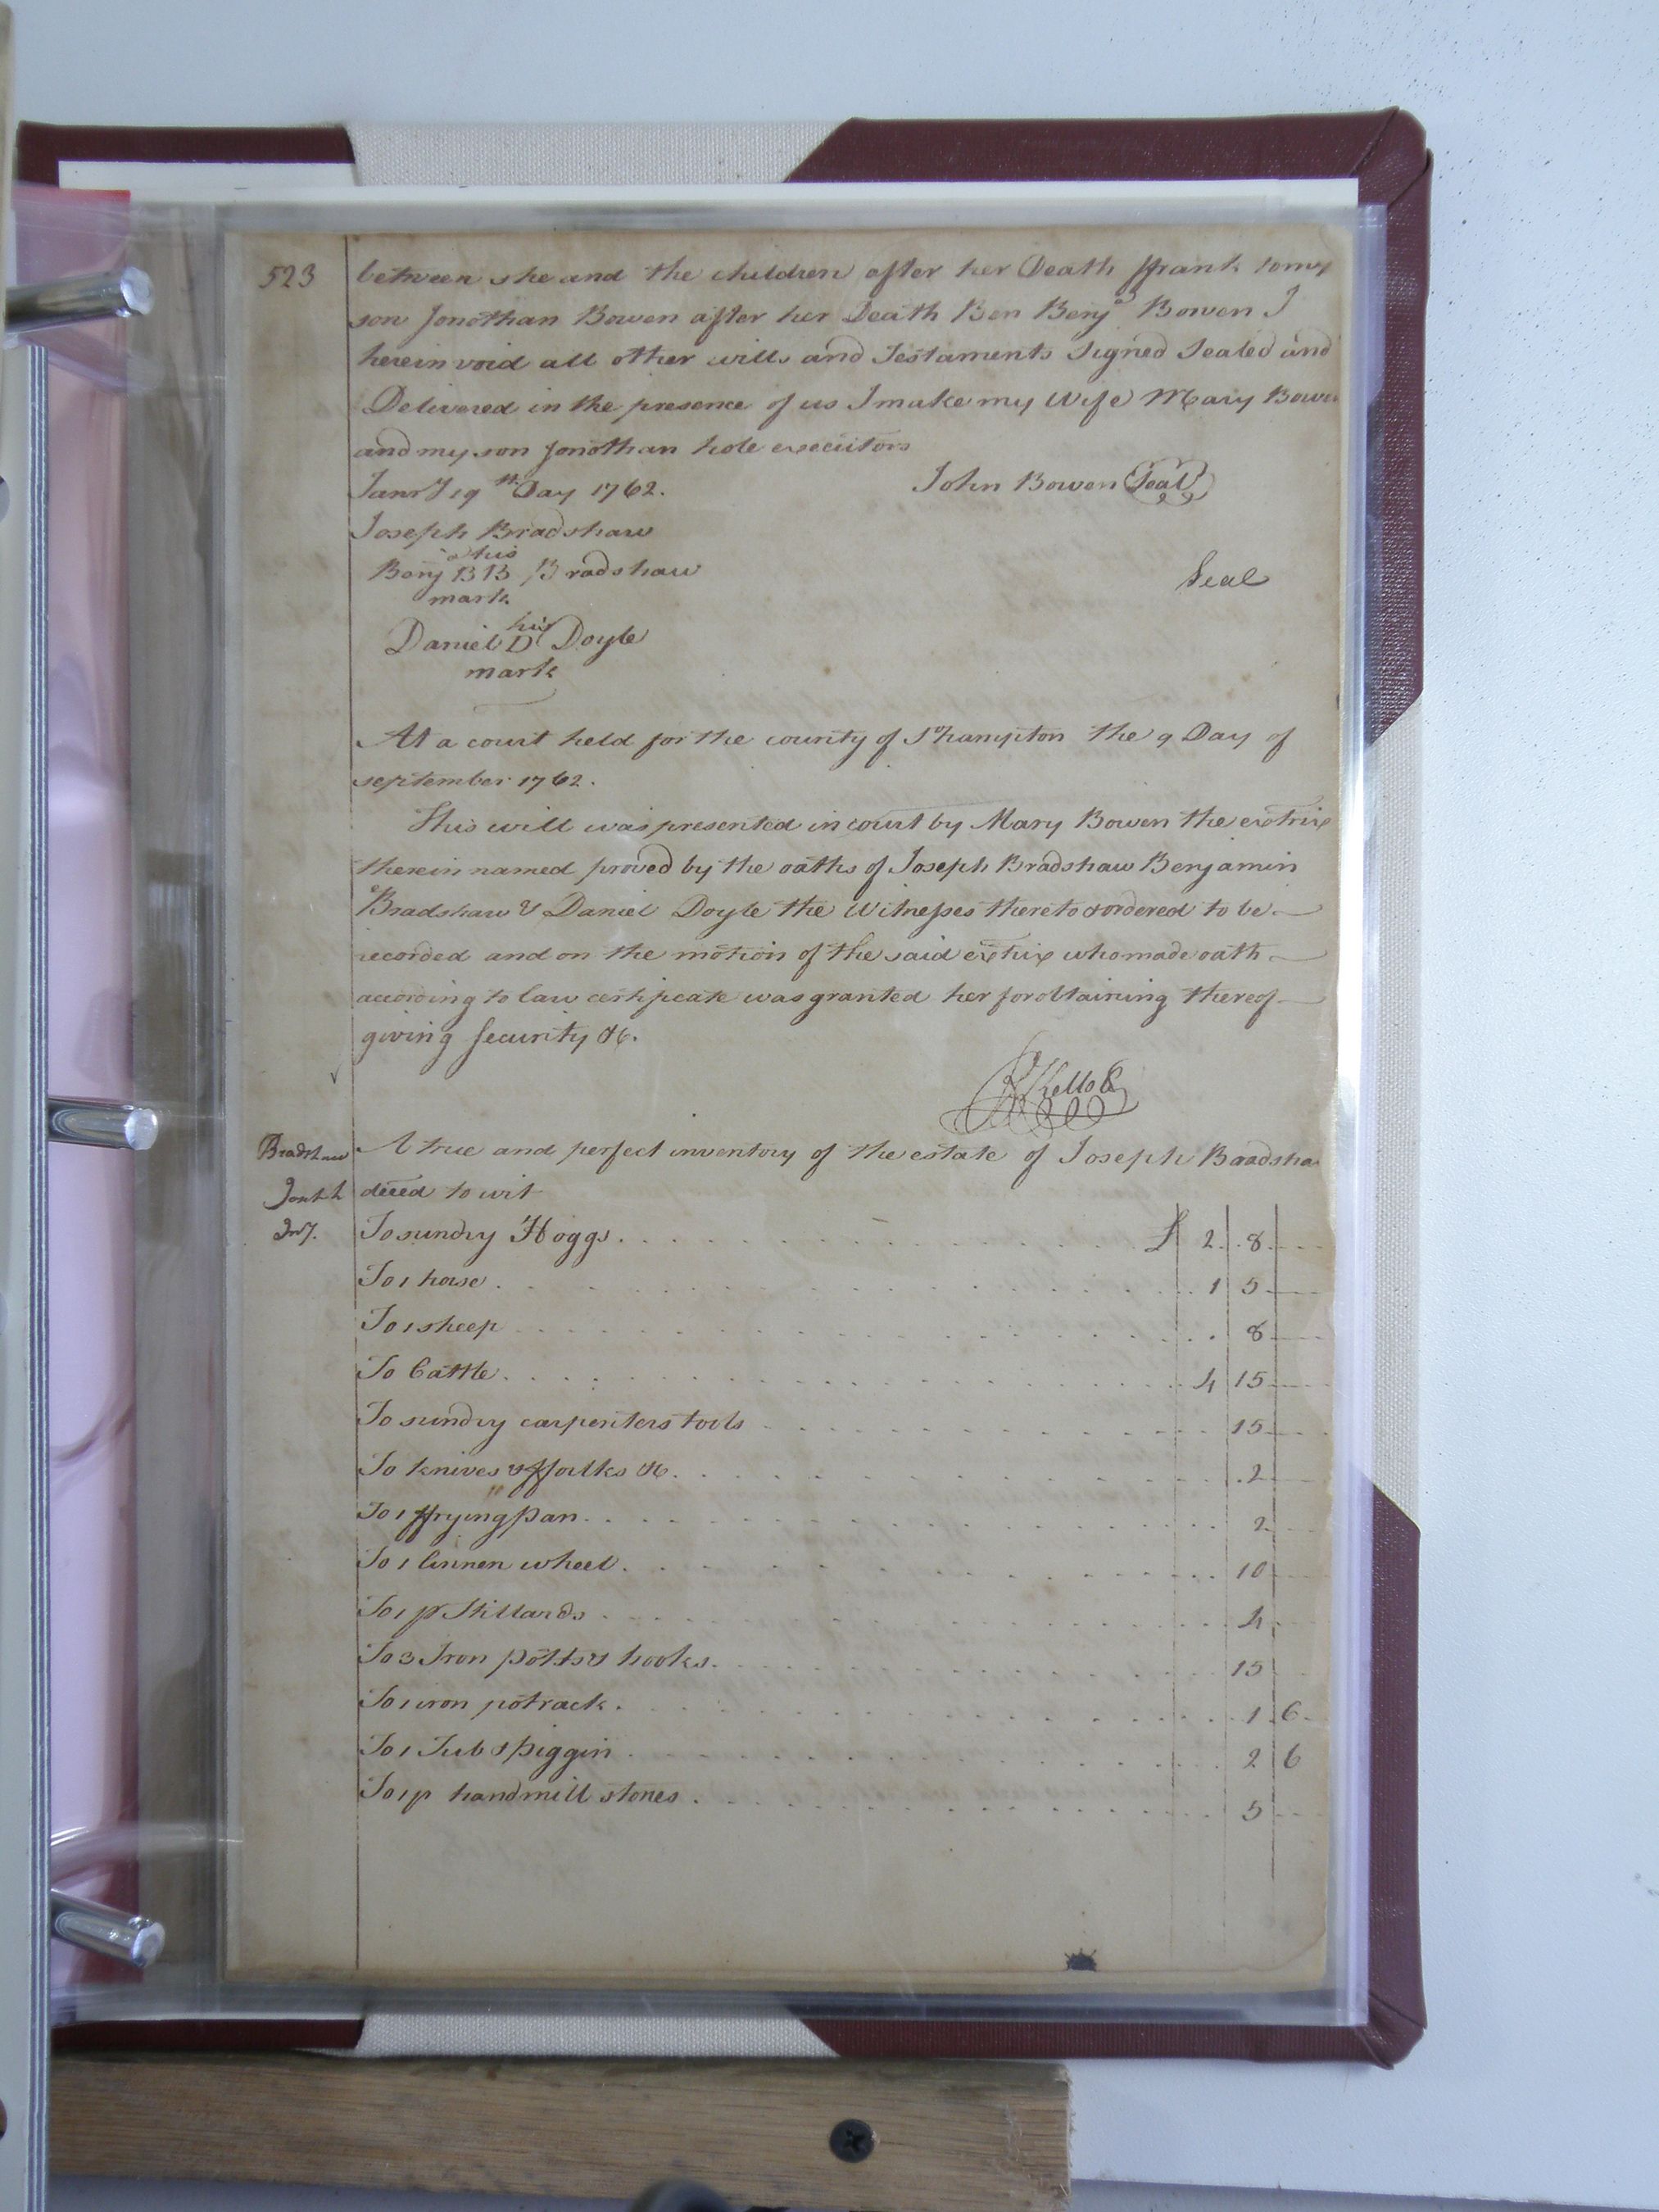 523
between she and the children after her Death ffrank to my
son Jonothan Bowen after her Death Ben Benja Bowen I
herein void all other wills and Testaments Signed Sealed and
Delivered in the presence of us I make my Wife Mary Bowen
and my son Jonothan hole executors
Janry 19th Day 1762.
John Bowen Seal
Joseph Bradshaw
his
Benja BB Bradshaw
Seal
mark
his
Daniel D Doyle
mark
At a court held for the county of Sohampton the 9 Day of
september 1762.
This will was presented in court by Mary Bowen the extrix
therein named proved by the oaths of Joseph Bradshaw Benjamin
Bradshaw & Daniel Doyle the Witnesses thereto & ordered to be
recorded and on the motion of the said extrix who made oath
according to law certificate was granted her for obtaining thereof
giving security &c.
R Kello C
Bradshaw
A true and perfect inventory of the estate of Joseph Bradsha
deced to wit
Inv.
To sundry Hoggs £ 2 8
To 1 horse 1 5
To 1 sheep 8
To Cattle 4 15
To sundry carpenters tools 15
To knives & fforks &c. 2
To 1 ffrying pan 2
To 1 linnen wheel 10
To 1 pr Stillards 4
To 3 Iron potts & hooks 15
To 1 iron potrack 1 6
To 1 Tub & piggin 2 6
To 1 p handmill stones 5